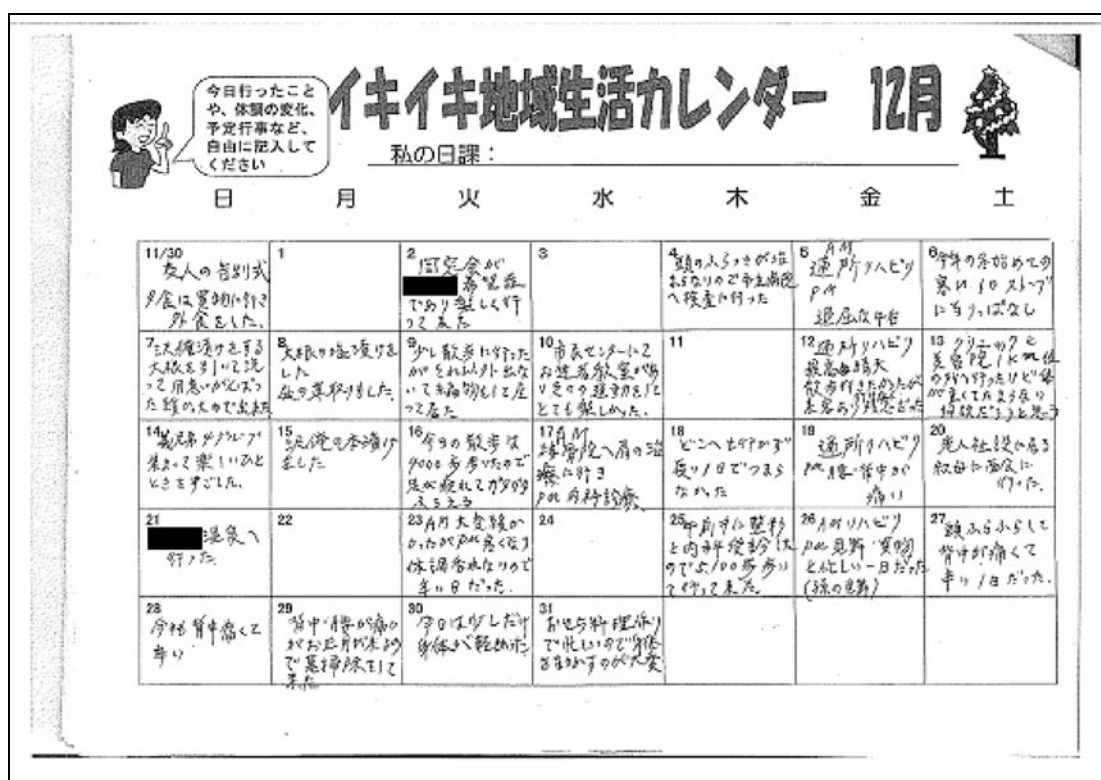 今日行ったこと
や、体調の変化、
予定行事など、
自由に記入して
ください
イキイキ地域生活カレンダー 12月
私の日課：
日 月 火 水 木 金 土
11/30
友人の告別式
夕食は買物に行き
外食をした。
1
2
であり楽しく行
って来た
3
4
頭のふらつきが治
まらないので市立病院
へ検査に行った
5
AM
通所リハビリ
PM
退屈な午后
6
今年の冬始めての
寒い日 ストーブ
に当りっぱなし
7
大根を引いて洗
って用意 がんばっ
8
大根の塩漬けを
した
9
少し散歩に行った
がそれ以外出な
いで編物をして居
って居た
10
市民センターにて
とても楽しかった。
11
12
通所リハビリ
最高の晴天
散歩行きたかったが
来客あり残念だった
13
クリニックと
美容院
14
集まって楽しいひと
ときをすごした。
15
本漬け
をした
16
今日の散歩は
9000歩歩いたので
足が疲れてガタガタ
ふるえる
17
AM
接骨院へ肩の治
療に行き
PM 内科診療
18
どこへも行かず
長い1日でつまら
なかった
19
通所リハビリ
PM 腰・背中が
痛い
20
老人施設に居る
叔母に面会に
行った。
21
温泉へ
行った
22
23
AM 大変暖か
かったがPM寒くなり
体調合わないので
辛い日だった。
24
25
午前中に整形
と内科受診
ので5,100歩歩い
て行って来た。
26
AM リハビリ
PM 見舞・買物
と忙しい一日だった
(孫の見舞)
27
頭ふらふらして
背中が痛くて
辛い1日だった。
28
今日も背中痛くて
辛い
29
背中・腰が痛い
がお正月が来るの
で墓掃除をして
来た
30
今日は少しだけ
身体が軽かった
31
おせち料理作り
で忙しいので身体
をまかすのが大変